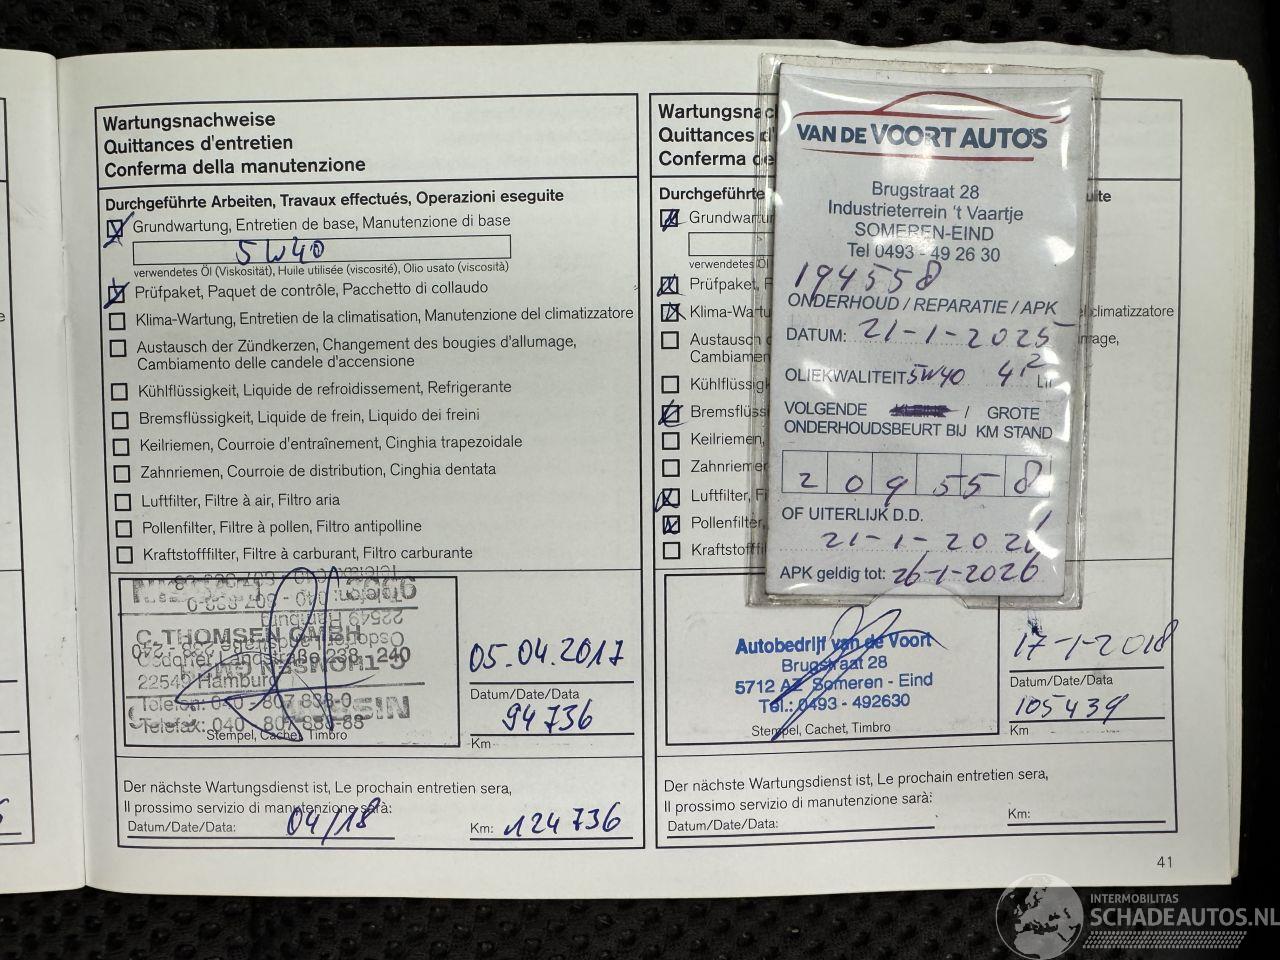 Wartungsnachweise
Quittances d'entretien
Conferma della manutenzione
Durchgeführte Arbeiten, Travaux effectués, Operazioni eseguite
Grundwartung, Entretien de base, Manutenzione di base
5W40
verwendetes Öl (Viskosität), Huile utilisée (viscosité), Olio usato (viscosità)
Prüfpaket, Paquet de contrôle, Pacchetto di collaudo
Klima-Wartung, Entretien de la climatisation, Manutenzione del climatizzatore
Austausch der Zündkerzen, Changement des bougies d'allumage,
Cambiamento delle candele d'accensione
Kühlflüssigkeit, Liquide de refroidissement, Refrigerante
Bremsflüssigkeit, Liquide de frein, Liquido dei freini
Keilriemen, Courroie d'entraînement, Cinghia trapezoidale
Zahnriemen, Courroie de distribution, Cinghia dentata
Luftfilter, Filtre à air, Filtro aria
Pollenfilter, Filtre à pollen, Filtro antipolline
Kraftstofffilter, Filtre à carburant, Filtro carburante
C. THOMSEN GMBH
Osdorfer Landstraße 238 - 240
22549 Hamburg
Telefon: 040 - 807 838-0
Telefax: 040 - 807 838-88
Stempel, Cachet, Timbro
05.04.2017
Datum/Date/Data
94736
Km
Der nächste Wartungsdienst ist, Le prochain entretien sera,
Il prossimo servizio di manutenzione sarà:
Datum/Date/Data: 04/18
Km: 124736
Wartungsnac
Quittances d'
Conferma de
Durchgeführte
uite
Grundwartun
verwendetes Öl
Prüfpaket, P
Klima-Wartu
el climatizzatore
Austausch d
mage,
Cambiamen
Kühlflüssigk
Bremsflüss
Keilriemen,
Zahnriemen
Luftfilter, Fi
Pollenfilter,
Kraftstofffil
VAN DE VOORT AUTO'S
Brugstraat 28
Industrieterrein 't Vaartje
SOMEREN-EIND
Tel 0493 - 49 26 30
194558
ONDERHOUD / REPARATIE / APK
DATUM: 21-1-2025
OLIEKWALITEIT 5W40 4,2 Lit
VOLGENDE KLEINE / GROTE
ONDERHOUDSBEURT BIJ KM STAND
209558
OF UITERLIJK D.D.
21-1-2026
APK geldig tot: 26-1-2026
Autobedrijf van de Voort
Brugstraat 28
5712 AZ Someren - Eind
Tel.: 0493 - 492630
Stempel, Cachet, Timbro
17-1-2018
Datum/Date/Data
105439
Km
Der nächste Wartungsdienst ist, Le prochain entretien sera,
Il prossimo servizio di manutenzione sarà:
Datum/Date/Data:
Km:
41
INTERMOBILITAS
SCHADEAUTOS.NL